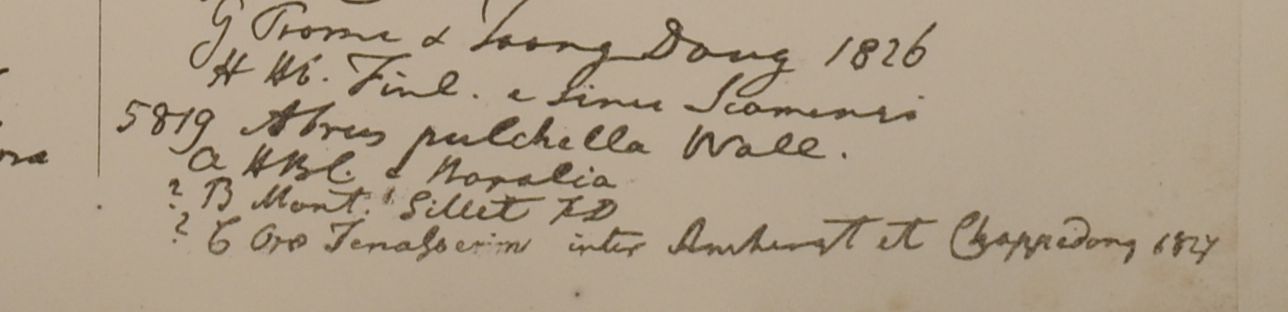 G Prome & Toong Dong 1826
H Hb. Finl. e Sinu Siamensi
5819 Abrus pulchella Wall.
a HBC. e
? B Mont. Sillet FD
? C Ora Tenasserim inter Amherst et Chappedong 1827